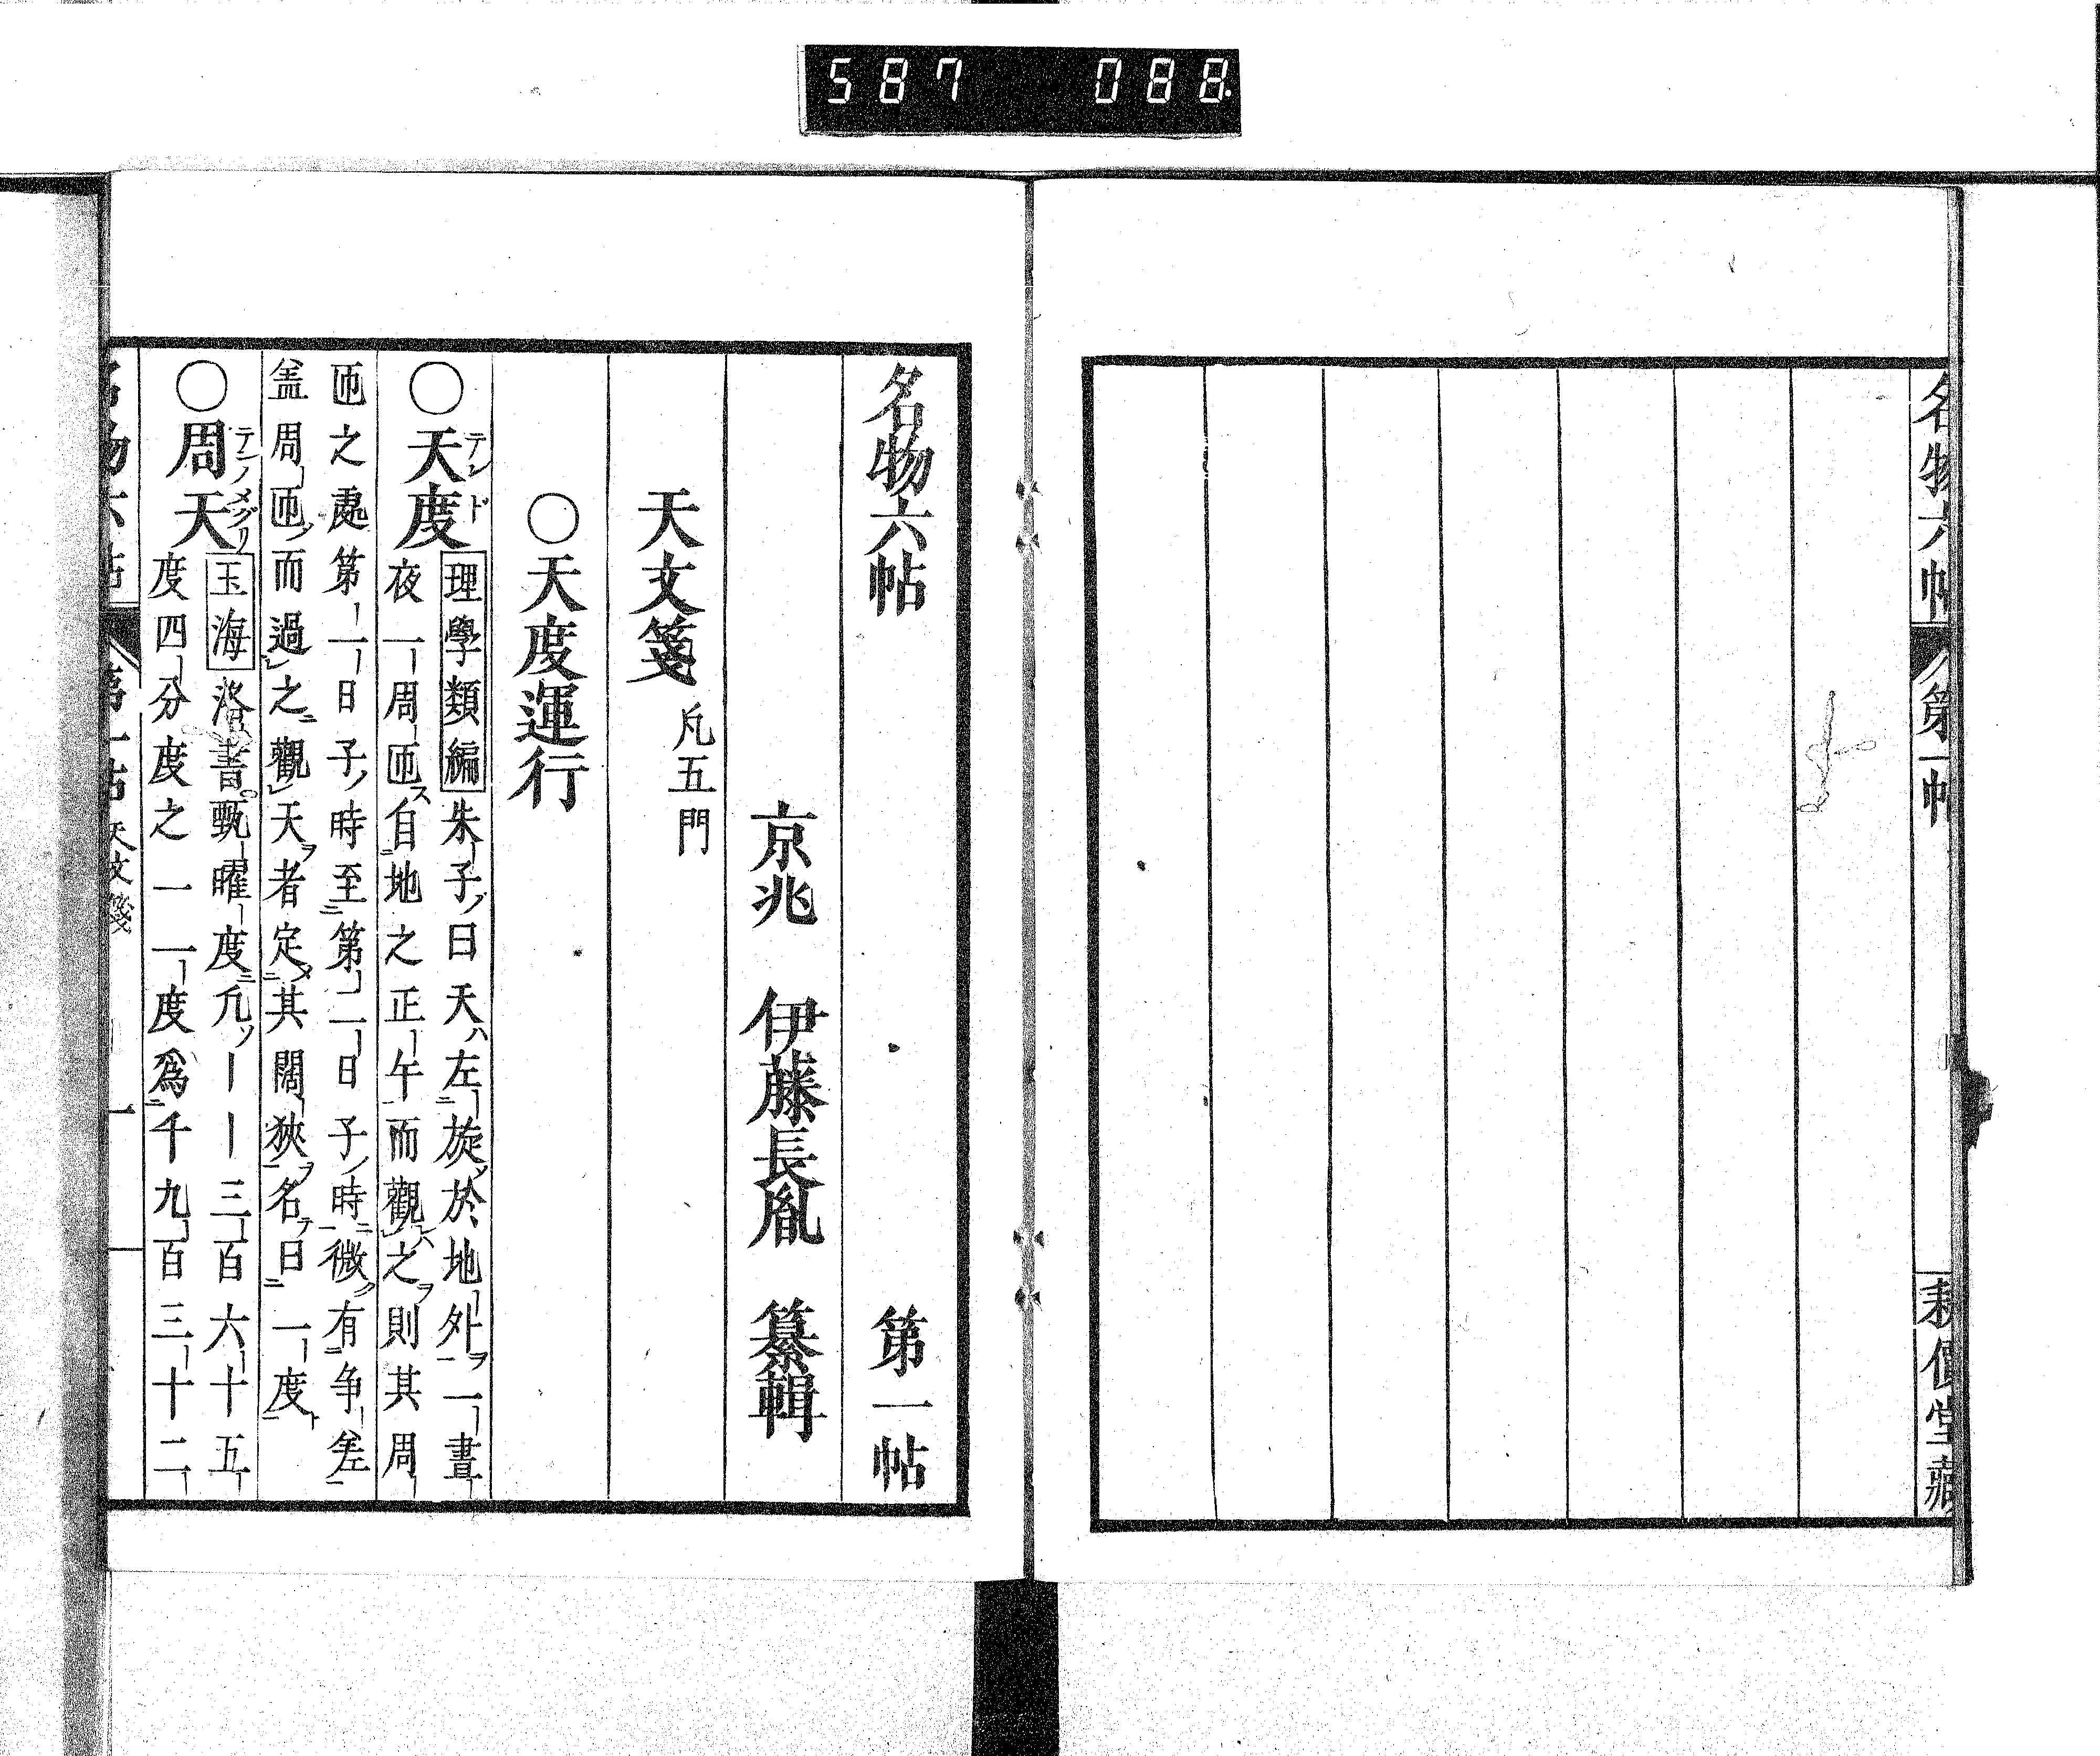 587 088.
名物六帖
第一帖
耕價堂藏
名物六帖 第一帖
京兆 伊藤長胤 纂輯
天文箋 凡五門
○天度運行
○天度 テンド 理學類編 朱子ノ曰天ハ左旋於地外ヲ一晝
夜一周匝ス自地之正午而觀之ヲ則其周
匝之處第一日子ノ時至第二日子ノ時微ク有争差
盖周匝ノ而過之觀天ヲ者定其闊狹ヲ名テ曰一度ト
○周天 テンノメグリ 玉海 洛書甄曜度ニ凡ソ〡〡三百六十五
度四分度之一一度爲千九百三十二
名物六帖
第一帖 天文箋
一